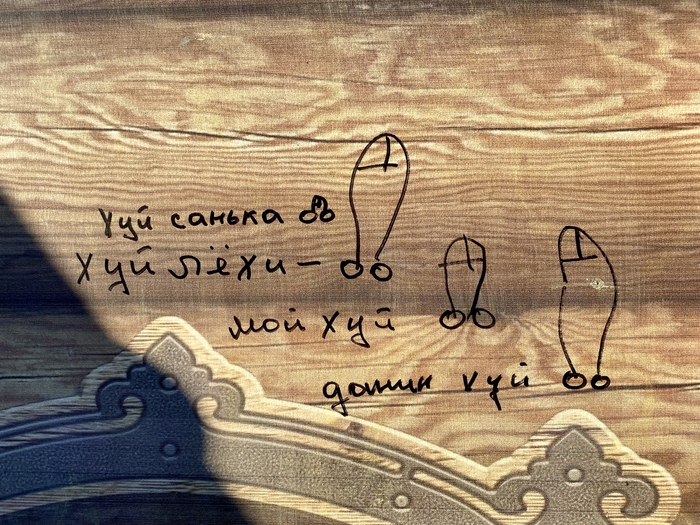 хуй санька
хуй лёхи –
мой хуй
данин хуй